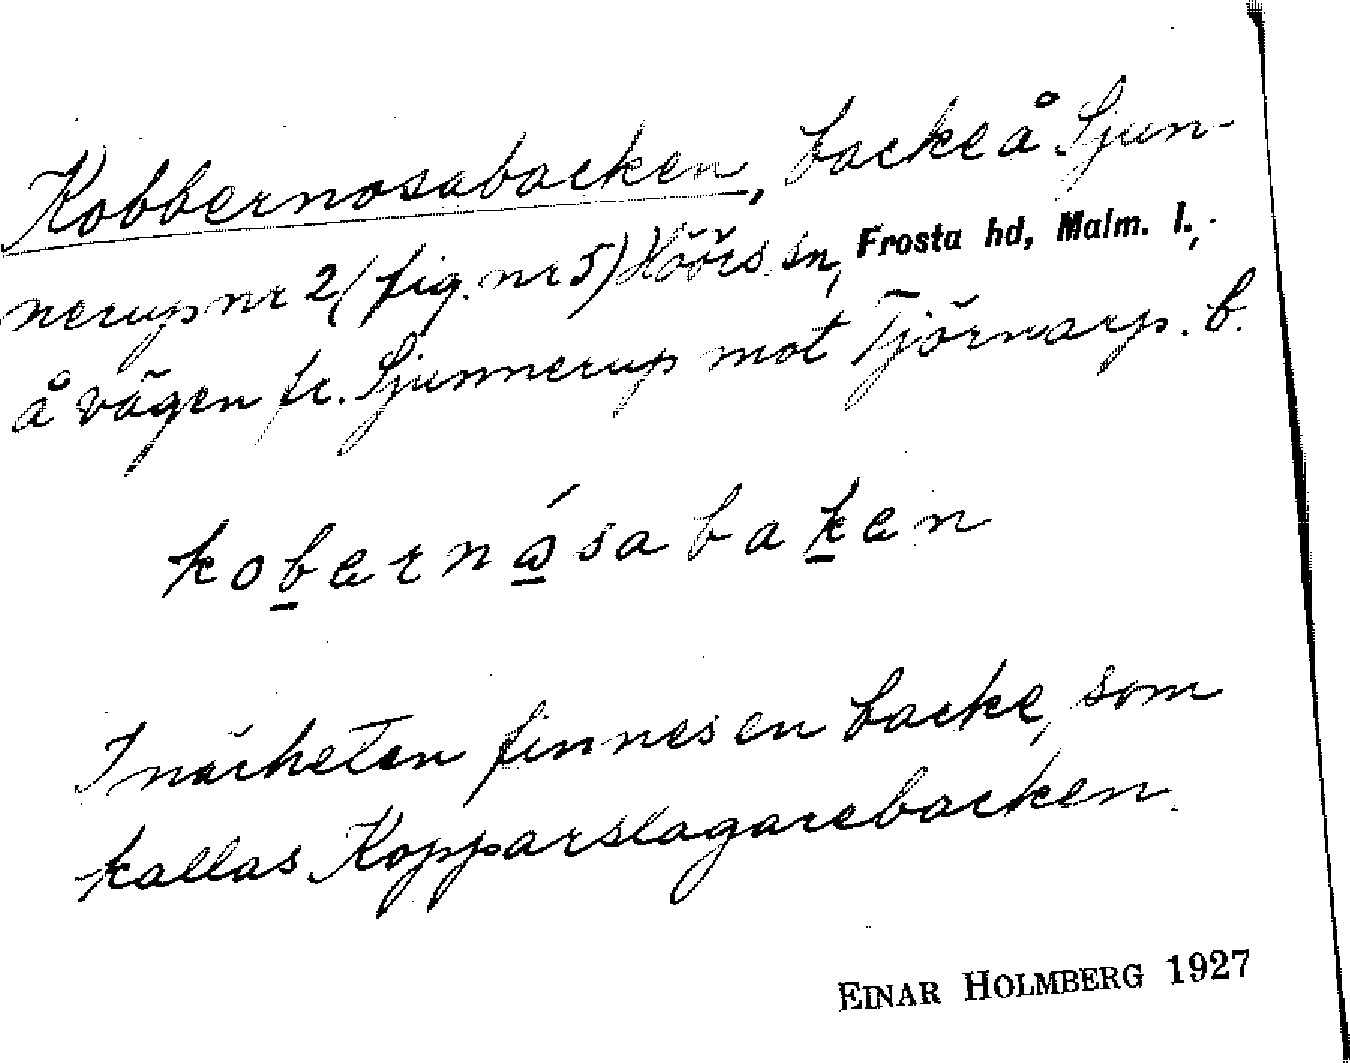 Kobbernosabacken, backe å Sjun-
nerup nr 2 (fig. nr 5) Höörs sn, Frosta hd, Malm. l.,
å vägen fr. Sjunnerup mot Tjörnarp. b.
kobernåsabaken
I närheten finnes en backe, som
kallas Kopparslagarebacken.
EINAR HOLMBERG 1927